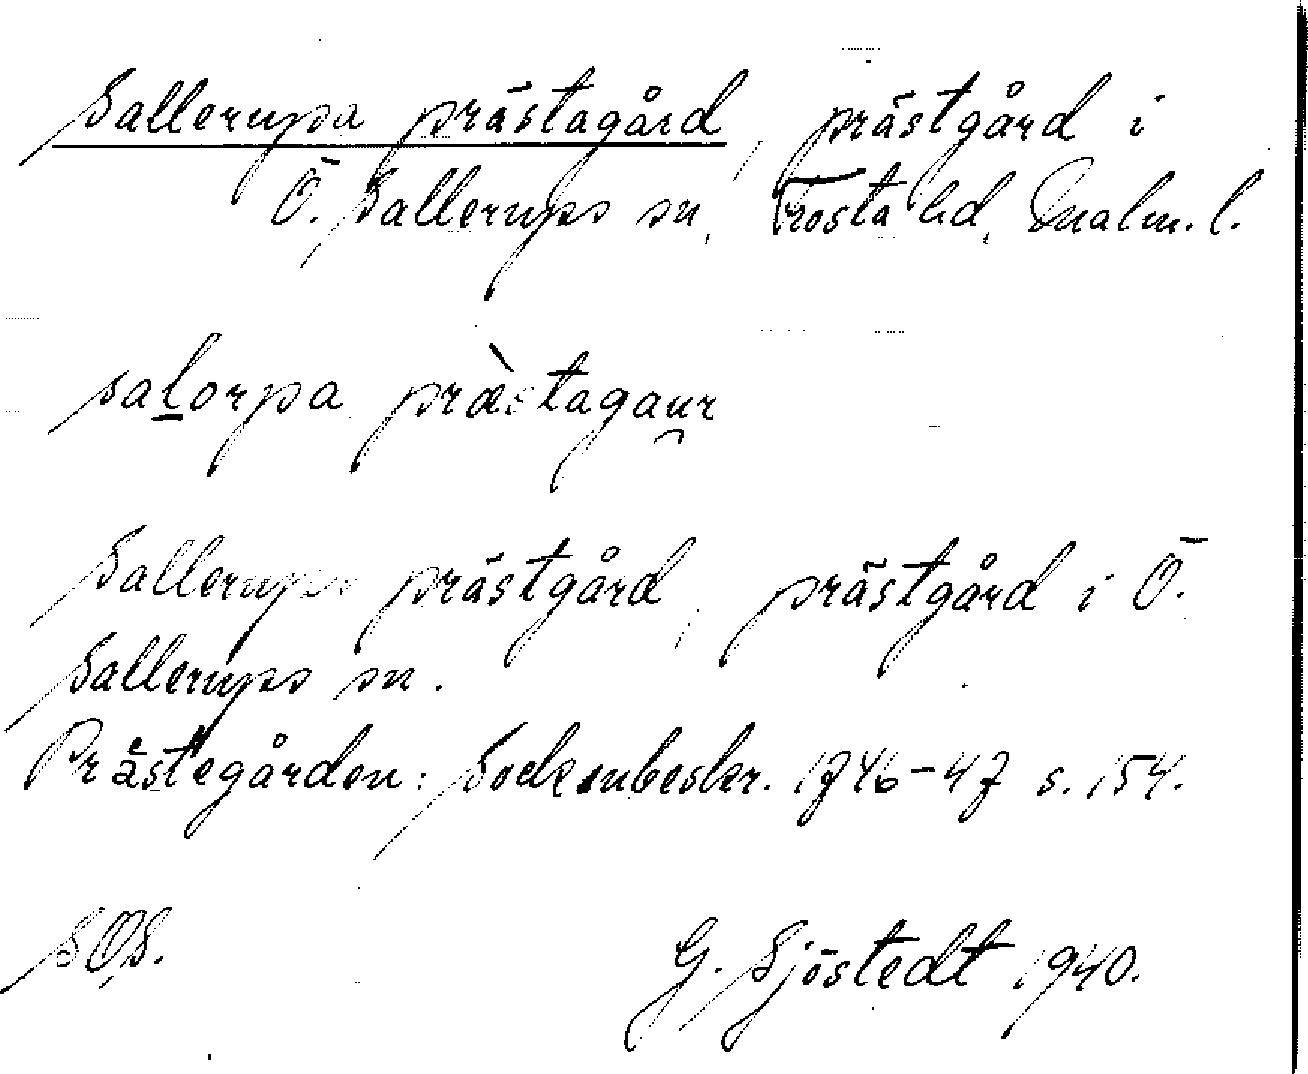 Sallerupa prästagård, prästgård i
Ö. Sallerups sn, Frosta hd, Malm. l.
salorpa præ̀stagau̯r
Sallerups prästgård, prästgård i Ö.
Sallerups sn.
Prästegården: Sockenbeskr. 1746-47 s. 154.
SOS. G. Sjöstedt 1940.